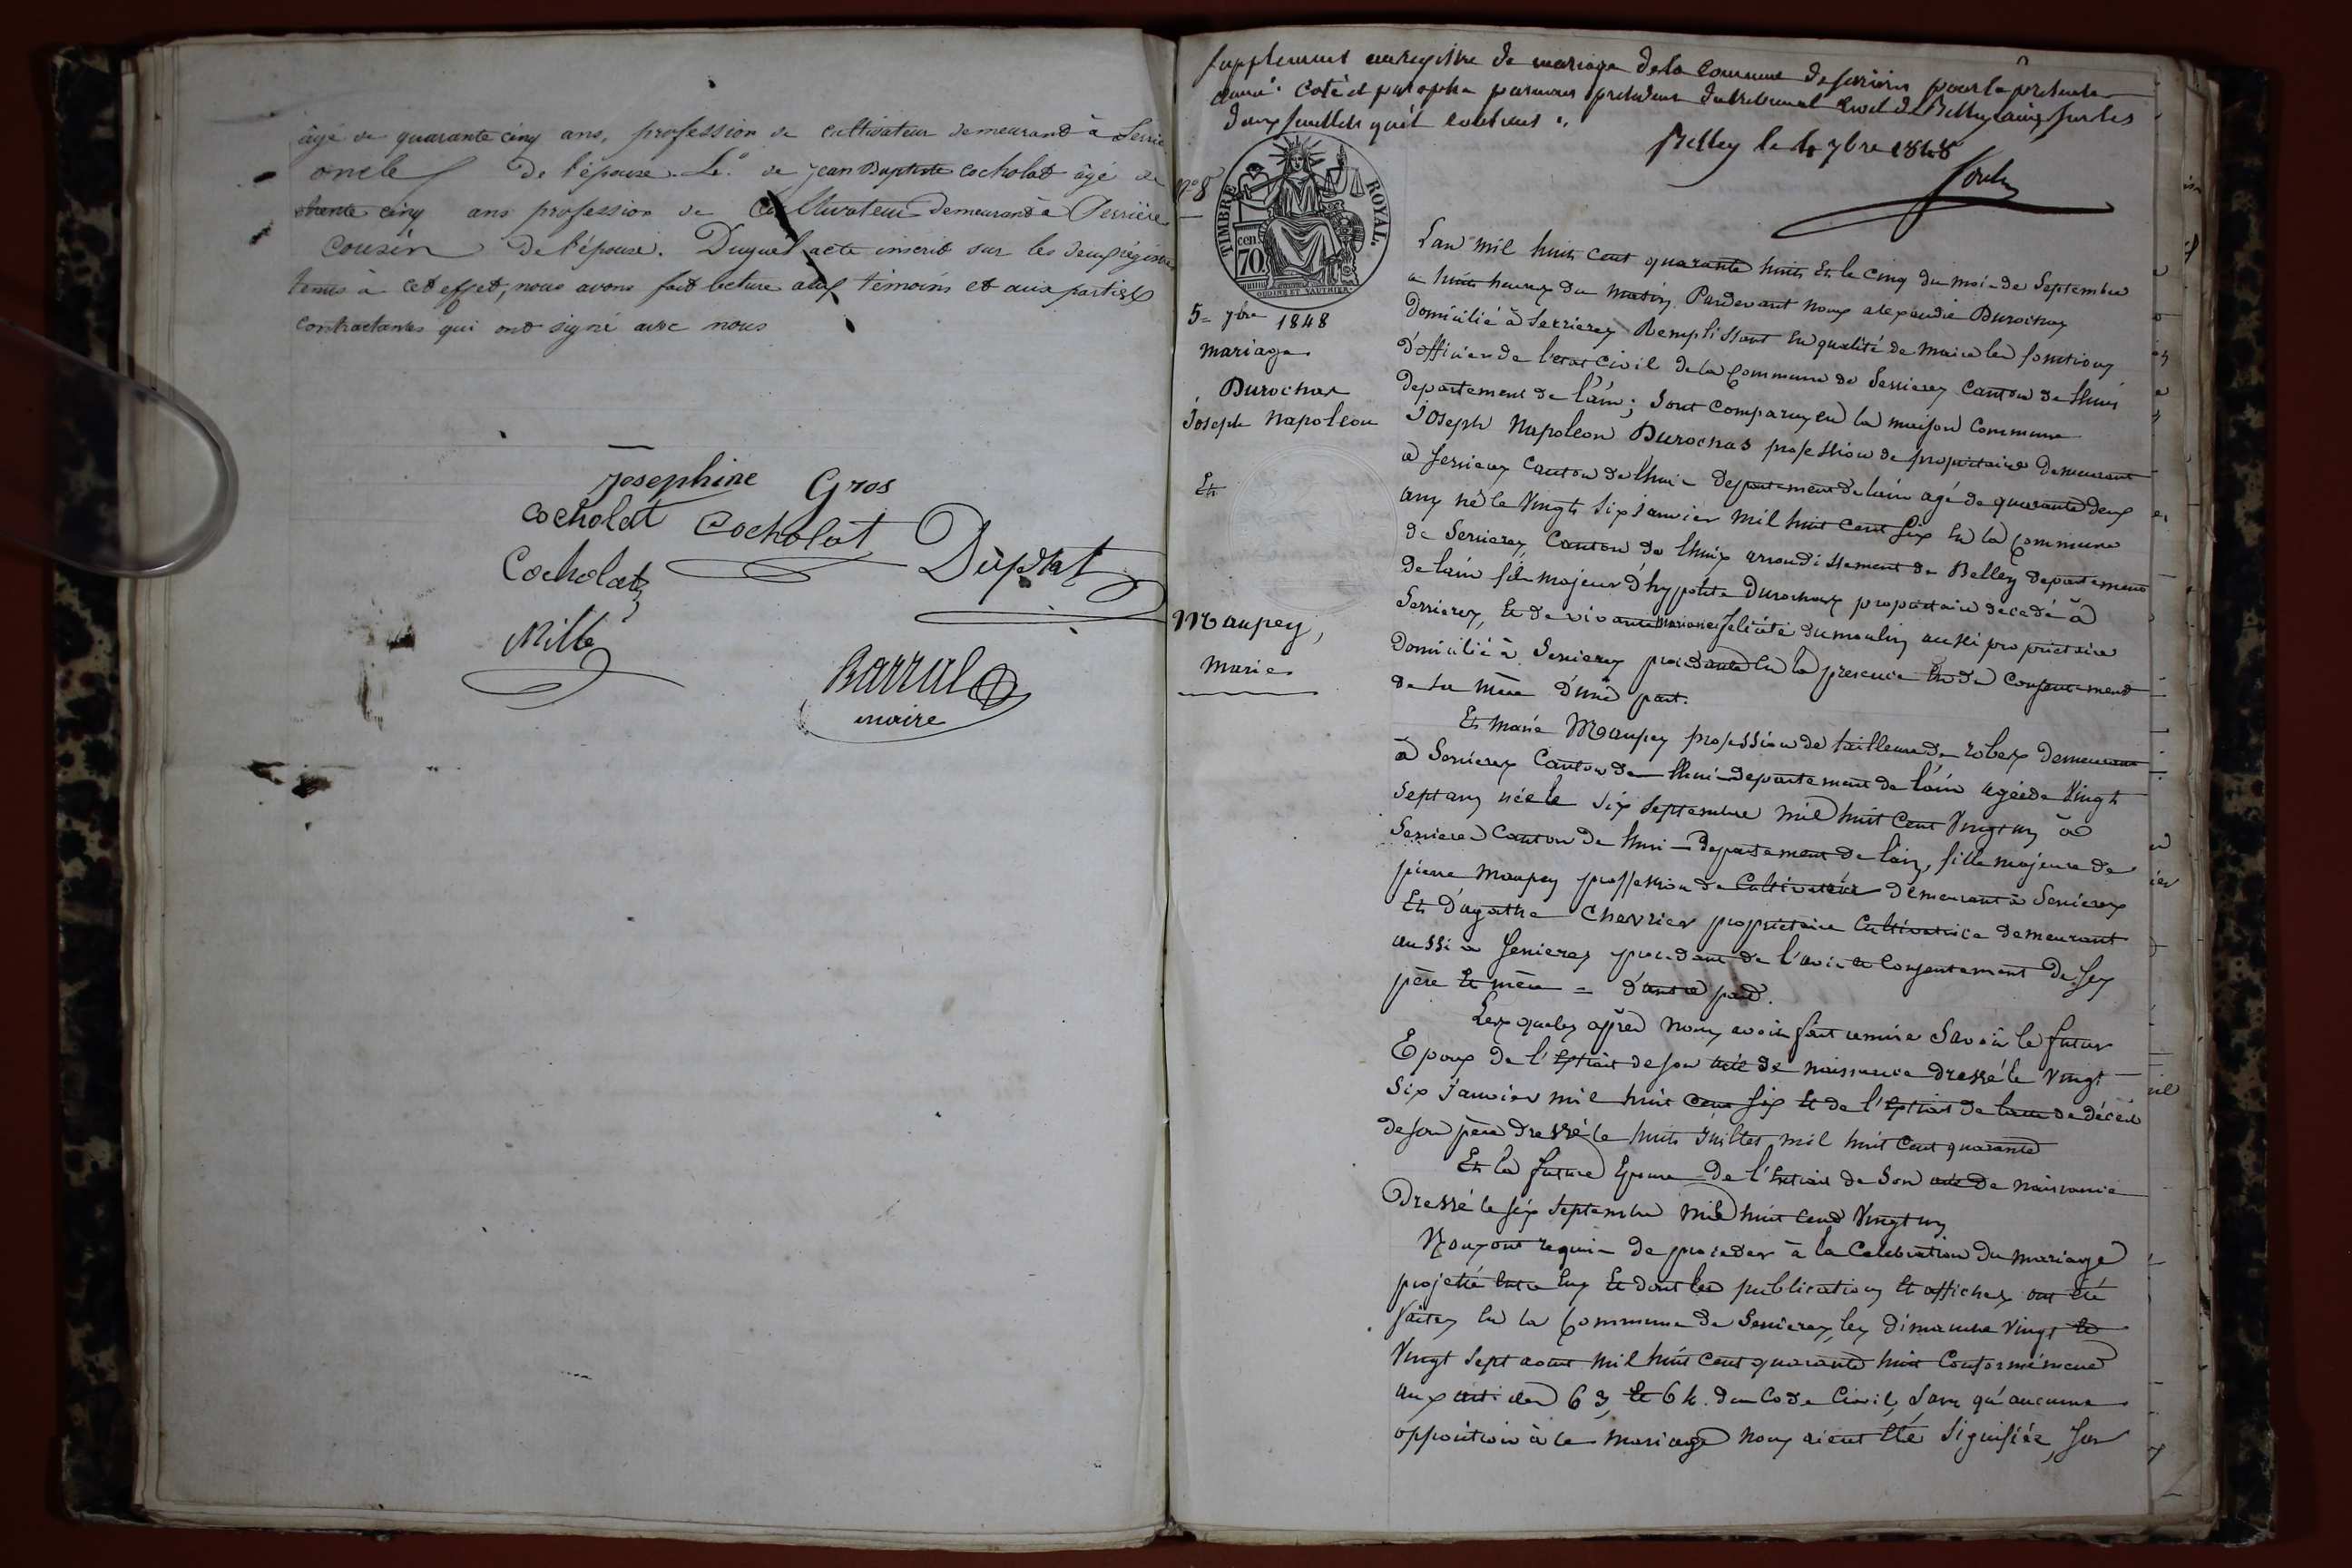 âgé de quarante cinq ans, profession de cultivateur demeurand à Serriè
oncle de l'épouse. Le de jean Baptiste cocholat âgé de
trente cinq ans profession de Cultivateur demeurand à Serrière
cousin de l'épouse. Duquel acte inscrit sur les deux régistres
tenus à cet effet, nous avons fait lecture aux témoins et aux parties
contractantes qui ont signé avec nous
Josephine Gros
cocholat Cocholat Duprat
Cocholat
Mille
Barral
maire
supplement au registre de mariage de la commune de serrieres pour la présente
année. Coté et paraphé par nous président du tribunal civil de Belley ain, sur les
deux feuillets qu'il contient.
Belley le 4 7bre 1848
n° 8
TIMBRE ROYAL.
cen. 70
5 = 7bre 1848
mariage
Durochas
Joseph Napoleon
Et
Maupey,
Marie
Lan mil huit cent quarante huit Et le cinq du mois de Septembre
a huit heures du matin Pardevant nous alexandre Durochas
domicilié à Serrierez Remplissant en qualité de maire les fonctions
d'officier de l'etat civil de la Commune de Serrierez Canton de Lhuis
departement de l'ain ; Sont comparuz en la maison commune
Joseph Napoleon Durochas profession de propriétaire demeurant
a Serrierez Canton de lhuis departement de lain agé de quarante deux
ans né le Vingt Six janvier mil huit cent Six en la Commune
de Serrierez Canton de lhuis arrondissement de Belley departement
de lain fils majeur d'hypolite Durochas propriétaire decedé à
Serrierez, Et de vivante mariane felicité dumoulin aussi propriétaire
domicilié à Serrierez procedant en la presence Et du Consentement
de sa mère d'une part.
Et marie Maupey profession de tailleuse de robes demeurant
à Serrierez Canton de lhuis departement de lain agée de Vingt
Sept ans née le Six Septembre mil huit Cent Vingt un à
Serrieres Canton de lhuis departement de lain, fille majeure de
pierre Maupey proffession de Cultivateur demeurant à Serrierez
Et d'agathe Chevrier propriétaire Cultivatrice demeurant
aussi a Serrierez procedant de l'avis et Consentement de Ses
père Et mère = d'autre part.
Lesquels après nous avoir fait remise Savoir le futur
Epoux de l'Extrait de son acte de naissance dressé le Vingt
Six Janvier mil huit cent Six Et de l'Extrait de lacte de décès
de son père dressé le huit juillet mil huit Cent quarante
Et la future Epouse de l'Extrait de Son acte de naissance
Dressé le Six Septembre mil huit cent Vingt un
Nous ont requis de proceder à la Celebration du mariage
projetté entre Eux Et dont les publications Et affiches ont été
faites en la Commune de Serrierez, les dimanche Vingt Et
Vingt Sept aout mil huit cent quarante huit Conformément
aux articles 63, Et 64. du Code Civil, Sans qu'aucune
opposition à ce mariage nous aient été Signifiée, Sur